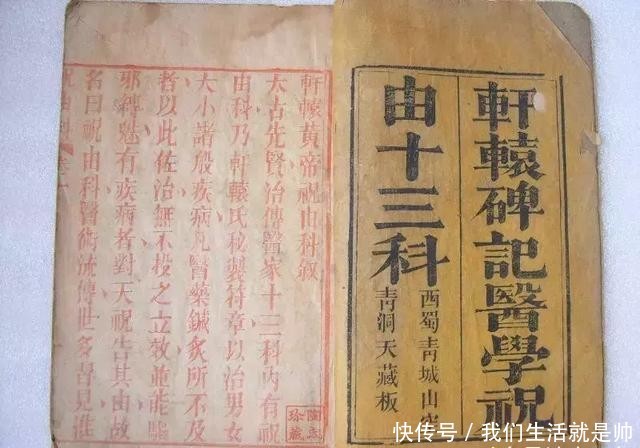 軒轅碑記醫學祝
由十三科
西蜀青城山
青洞天藏板
軒轅黃帝祝由科叙
太古先賢治傳醫家十三科內有祝
由科乃軒轅氏秘製符章以治男女
大小諸般疾病凡醫藥鍼灸所不及
者以此佐治無不投之立效並能驅
邪縛魅有疾病者對天祝告其由故
名曰祝由科醫術流傳世多習見
珍藏
快传号/我们生活就是帅